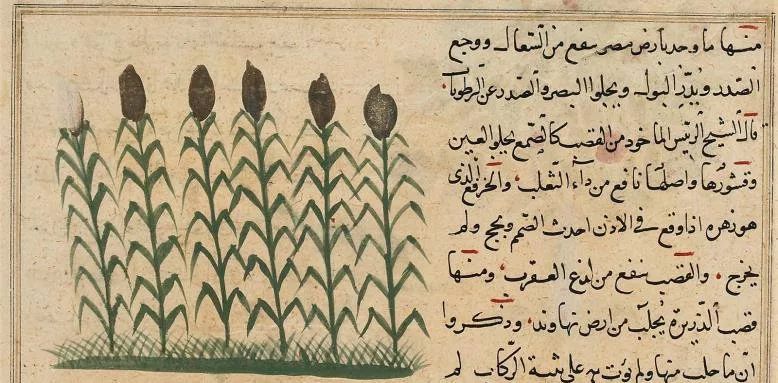 منها ما وجد بارض مصر ينفع من السّعال ووجع
الصّدر ويُدرّ البول ويجلوا البصر والصّدر عن الرطوبات
قال الشيخ الرئيس الماخوذ من القصب كالصّمغ يجلو العين
وقشورها واصلها نافع من دآء الثّعلب والخرقع الّذى
هو زهره اذا وقع فى الاذن احدث الصّمم ولحج ولم
يخرج والقصب ينفع من لذع العقرب ومنها
قصب الذّريرة يُجلب من ارض نهاوند وذكروا
انّ ما جلب منها ولم يؤت به على ثنية الرّكاب لم